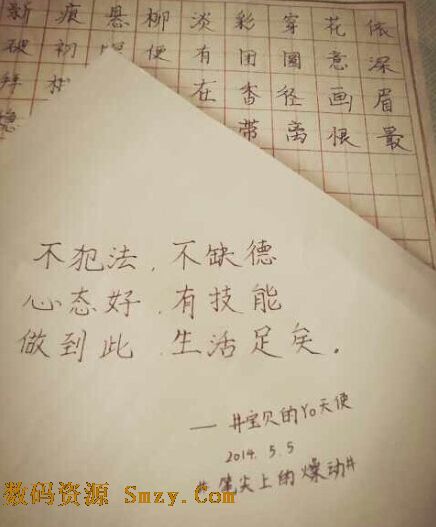 依深眉最
花意画恨
穿圆径离
彩团香带
淡有在
柳便
悬
痕初
新破拜
不犯法，不缺德
心态好，有技能
做到此，生活足矣。
——#宝贝的Yo天使
2014.5.5
#笔尖上的燥动#
数码资源 Smzy.Com